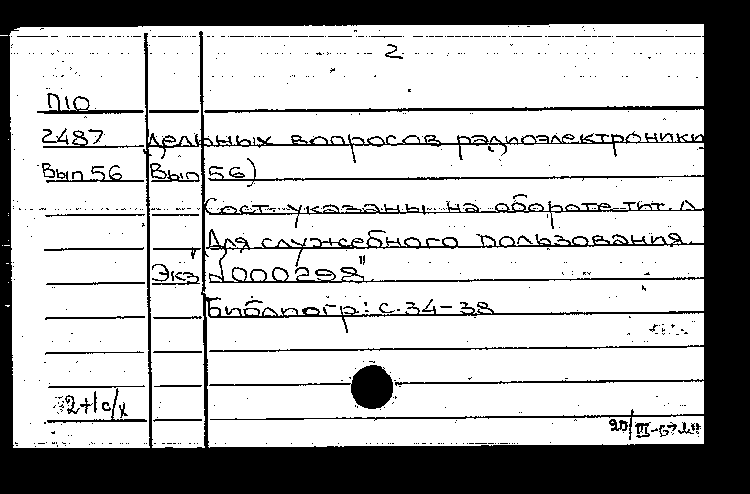 2
П10
2487 дельных вопросов радиоэлектроники
Вып 56 Вып 56)
Сост. указаны на обороте тит. л
Для служебного пользования.
Экз "№000298"
Библиогр: с. 34-38
32+1с/х
20/III-67